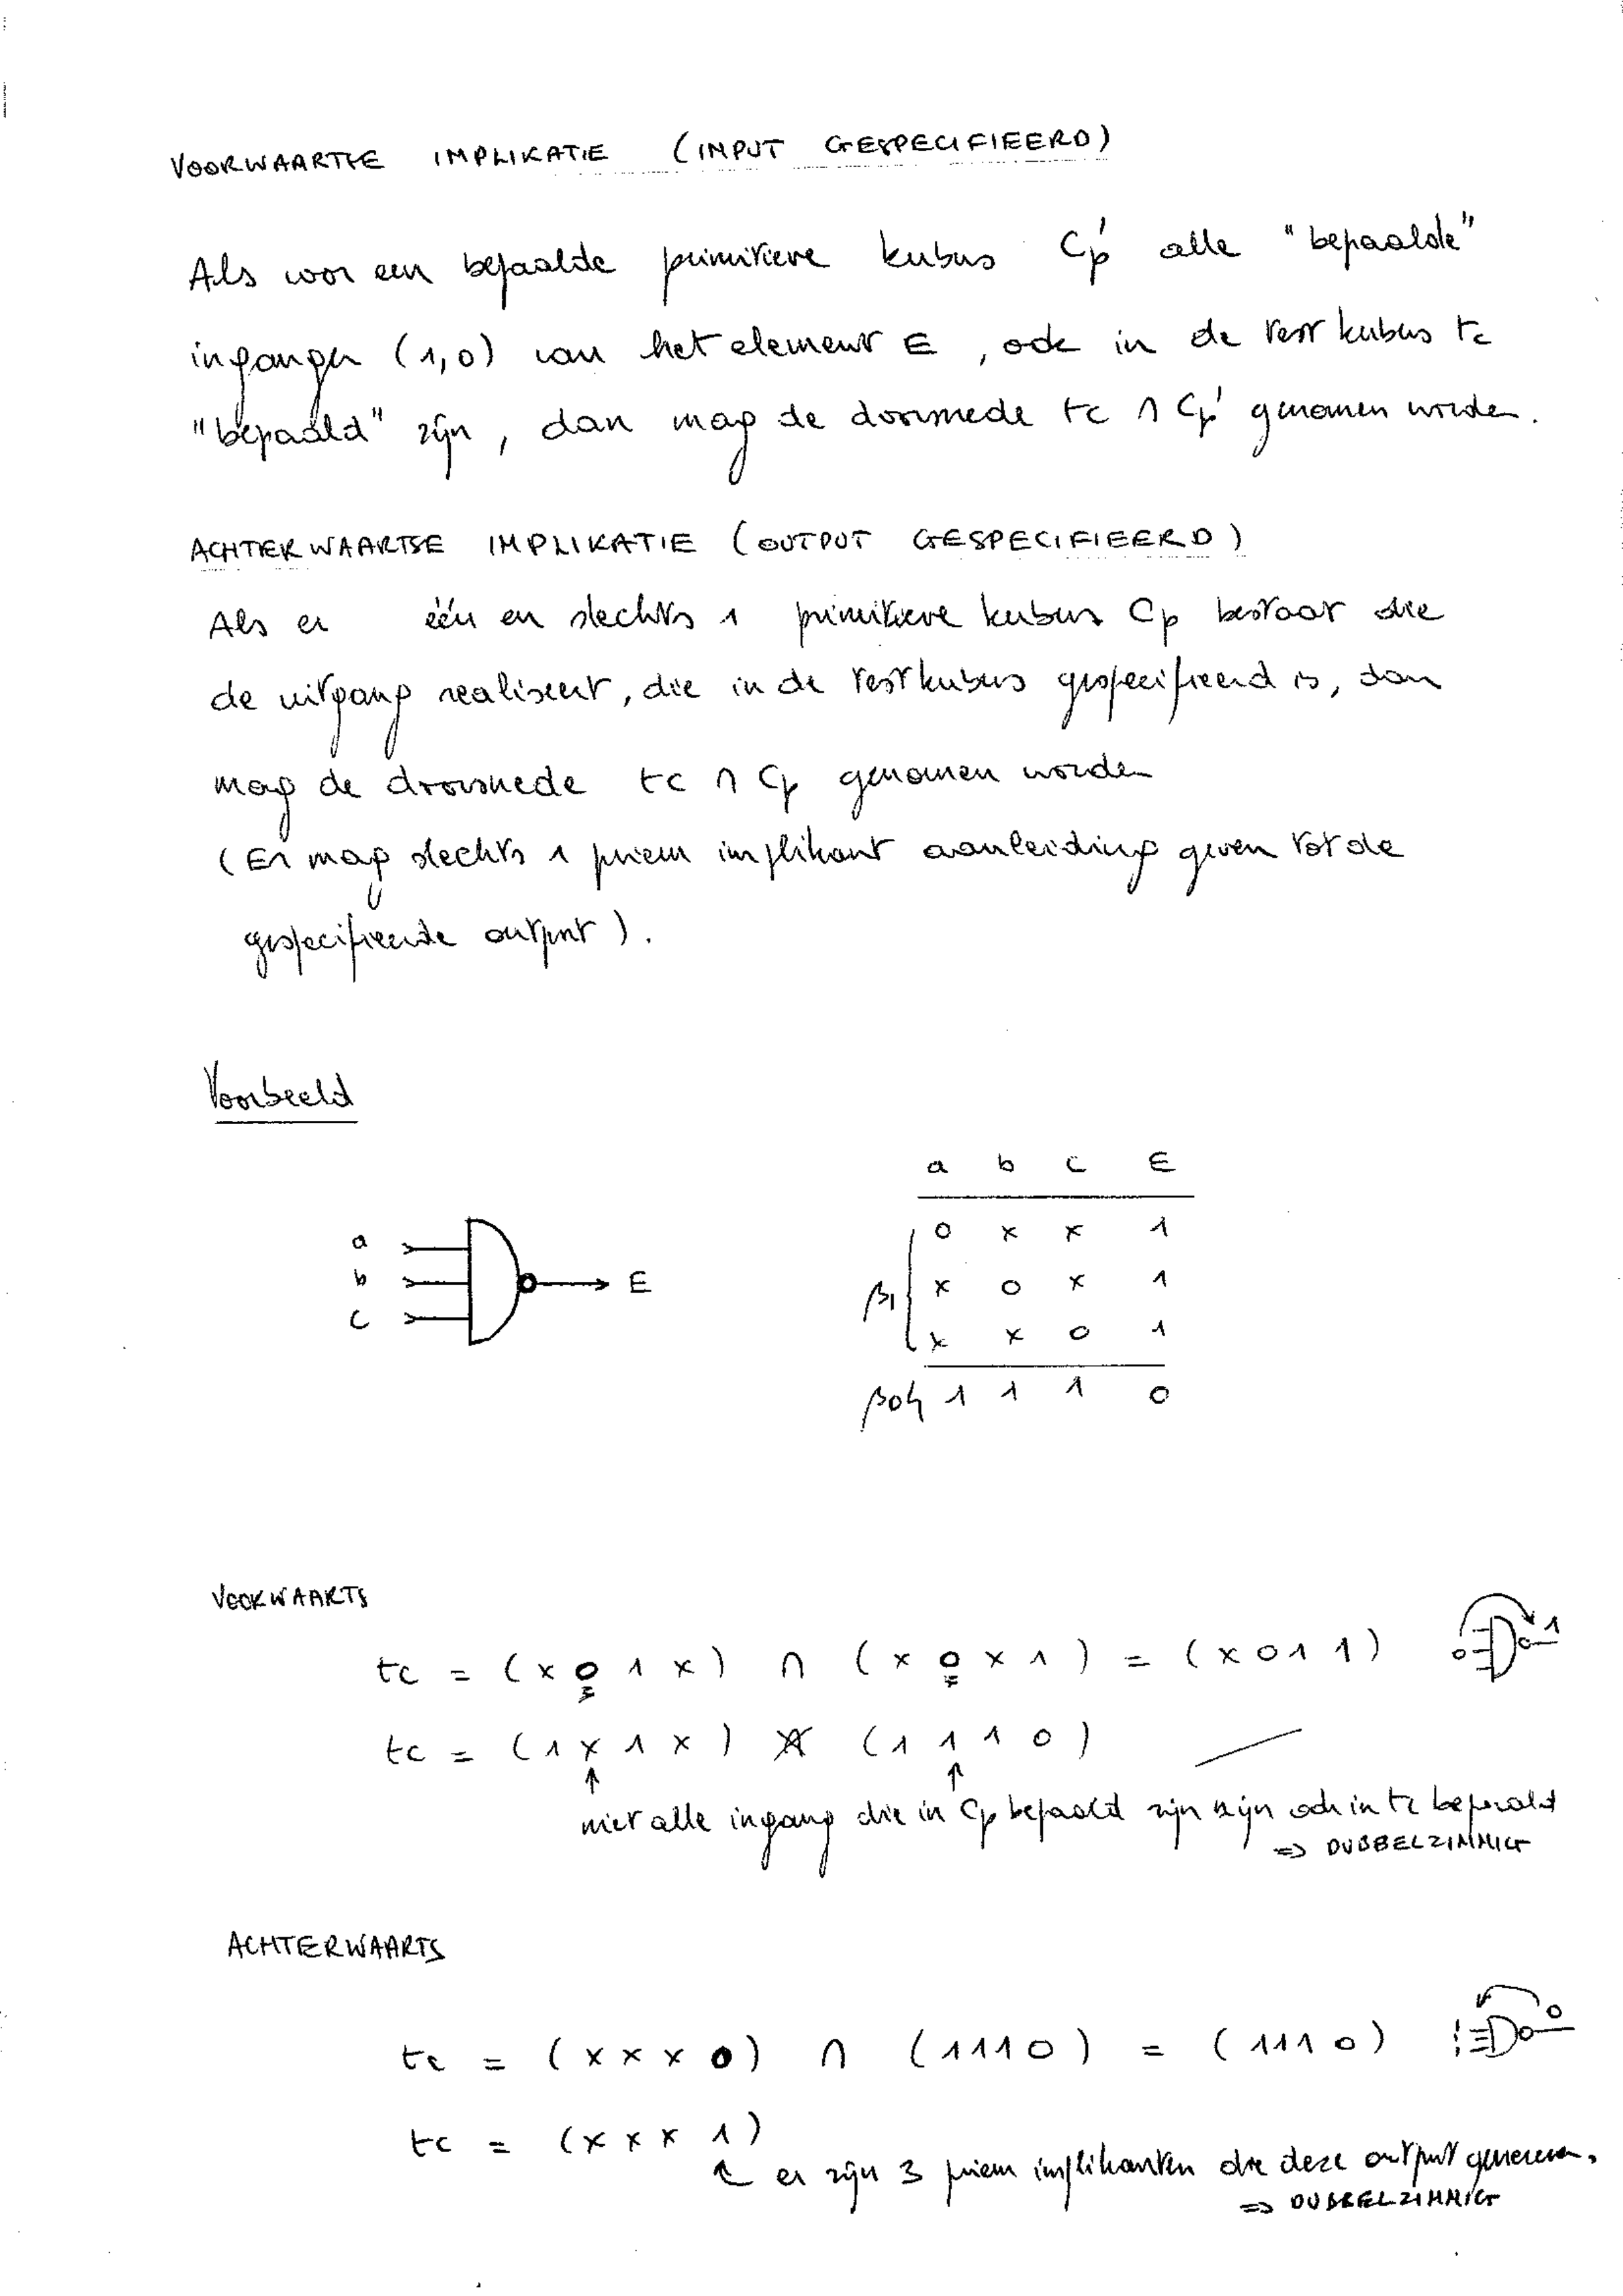 VOORWAARTSE IMPLIKATIE (INPUT GESPECIFIEERD)
Als voor een bepaalde primitieve kubus Cp' alle "bepaalde"
ingangen (1,0) van het element E, ook in de testkubus tc
"bepaald" zijn, dan mag de doorsnede tc ∩ Cp' genomen worden.
ACHTERWAARTSE IMPLIKATIE (OUTPUT GESPECIFIEERD)
Als er één en slechts 1 primitieve kubus Cp bestaat die
de uitgang realiseert, die in de testkubus gespecifieerd is, dan
mag de doorsnede tc ∩ Cp genomen worden
(Er mag slechts 1 priem implikant aanleiding geven tot de
gespecifieerde output).
Voorbeeld
a b c E
a 0 x x 1
b E β1 x 0 x 1
c x x 0 1
β0{ 1 1 1 0
VOORWAARTS
tc = (x 0 1 x) ∩ (x 0 x 1) = (x 0 1 1) 0 1
tc = (1 x 1 x) (1 1 1 0)
↑ ↑
niet alle ingang die in Cp bepaald zijn zijn ook in tc bepaald
=> DUBBELZINNIG
ACHTERWAARTS
tc = (x x x 0) ∩ (1110) = (1110) 0
tc = (x x x 1)
er zijn 3 priem implikanten die deze output genereren.
=> DUBBELZINNIG